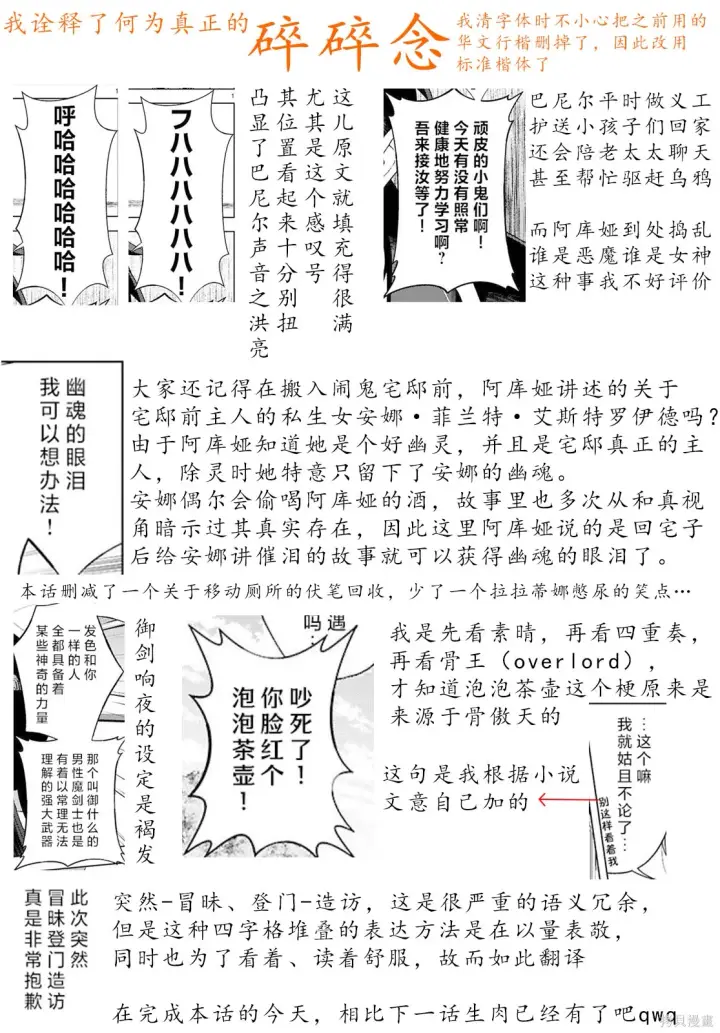 我诠释了何为真正的
碎碎念
我清字体时不小心把之前用的
华文行楷删掉了，因此改用
标准楷体了
呼哈哈哈哈哈哈哈！
フハハハハハハ！
这儿原文就填充得很满
尤其是这个感叹号
其位置看起来十分别扭
凸显了巴尼尔声音之洪亮
顽皮的小鬼们啊！
今天有没有照常
健康地努力学习啊？
吾来接汝等了！
巴尼尔平时做义工
护送小孩子们回家
还会陪老太太聊天
甚至帮忙驱赶乌鸦
而阿库娅到处捣乱
谁是恶魔谁是女神
这种事我不好评价
幽魂的眼泪
我可以想办法！
大家还记得在搬入闹鬼宅邸前，阿库娅讲述的关于
宅邸前主人的私生女安娜·菲兰特·艾斯特罗伊德吗？
由于阿库娅知道她是个好幽灵，并且是宅邸真正的主
人，除灵时她特意只留下了安娜的幽魂。
安娜偶尔会偷喝阿库娅的酒，故事里也多次从和真视
角暗示过其真实存在，因此这里阿库娅说的是回宅子
后给安娜讲催泪的故事就可以获得幽魂的眼泪了。
本话删减了一个关于移动厕所的伏笔回收，少了一个拉拉蒂娜憋尿的笑点…
发色和你
一样的人
全都具备着
某些神奇的力量
那个叫御什么的
男性魔剑士也是
有着以常理无法
理解的强大武器
御剑响夜的设定是褐发
遇…
吗…
吵死了！
你脸红个
泡泡茶壶！
我是先看素晴，再看四重奏，
再看骨王（overlord），
才知道泡泡茶壶这个梗原来是
来源于骨傲天的
这句是我根据小说
文意自己加的
…这个嘛
我就姑且不论了…
别这样看着我
此次突然
冒昧登门造访
真是非常抱歉
突然-冒昧、登门-造访，这是很严重的语义冗余，
但是这种四字格堆叠的表达方法是在以量表敬，
同时也为了看着、读着舒服，故而如此翻译
在完成本话的今天，相比下一话生肉已经有了吧qwq
拷贝漫畫